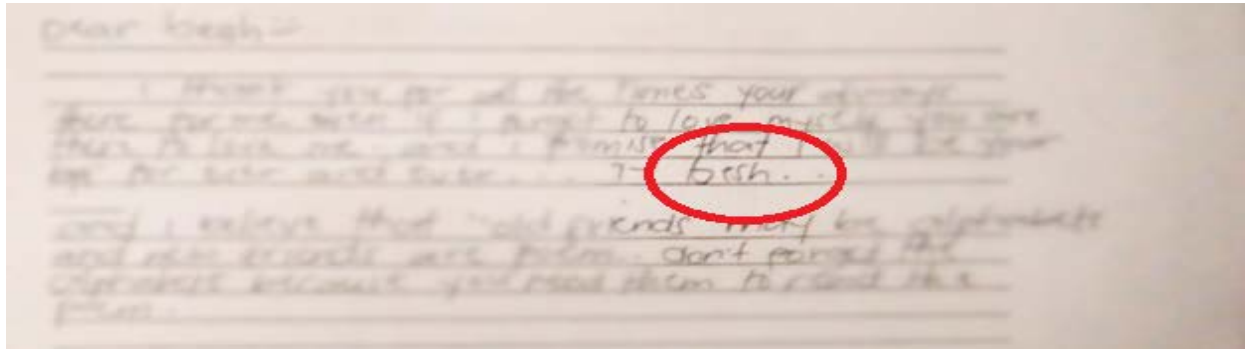 Dear besh =
I thank you for all the times your always
there for me even if i forget to love myself you are
there to love me and i promise that i will be your
for ever and ever.... besh..
and i believe that "old friends may be alphabets
and new friends are poem. don't forget the
alphabets because you need them to read the
poem.